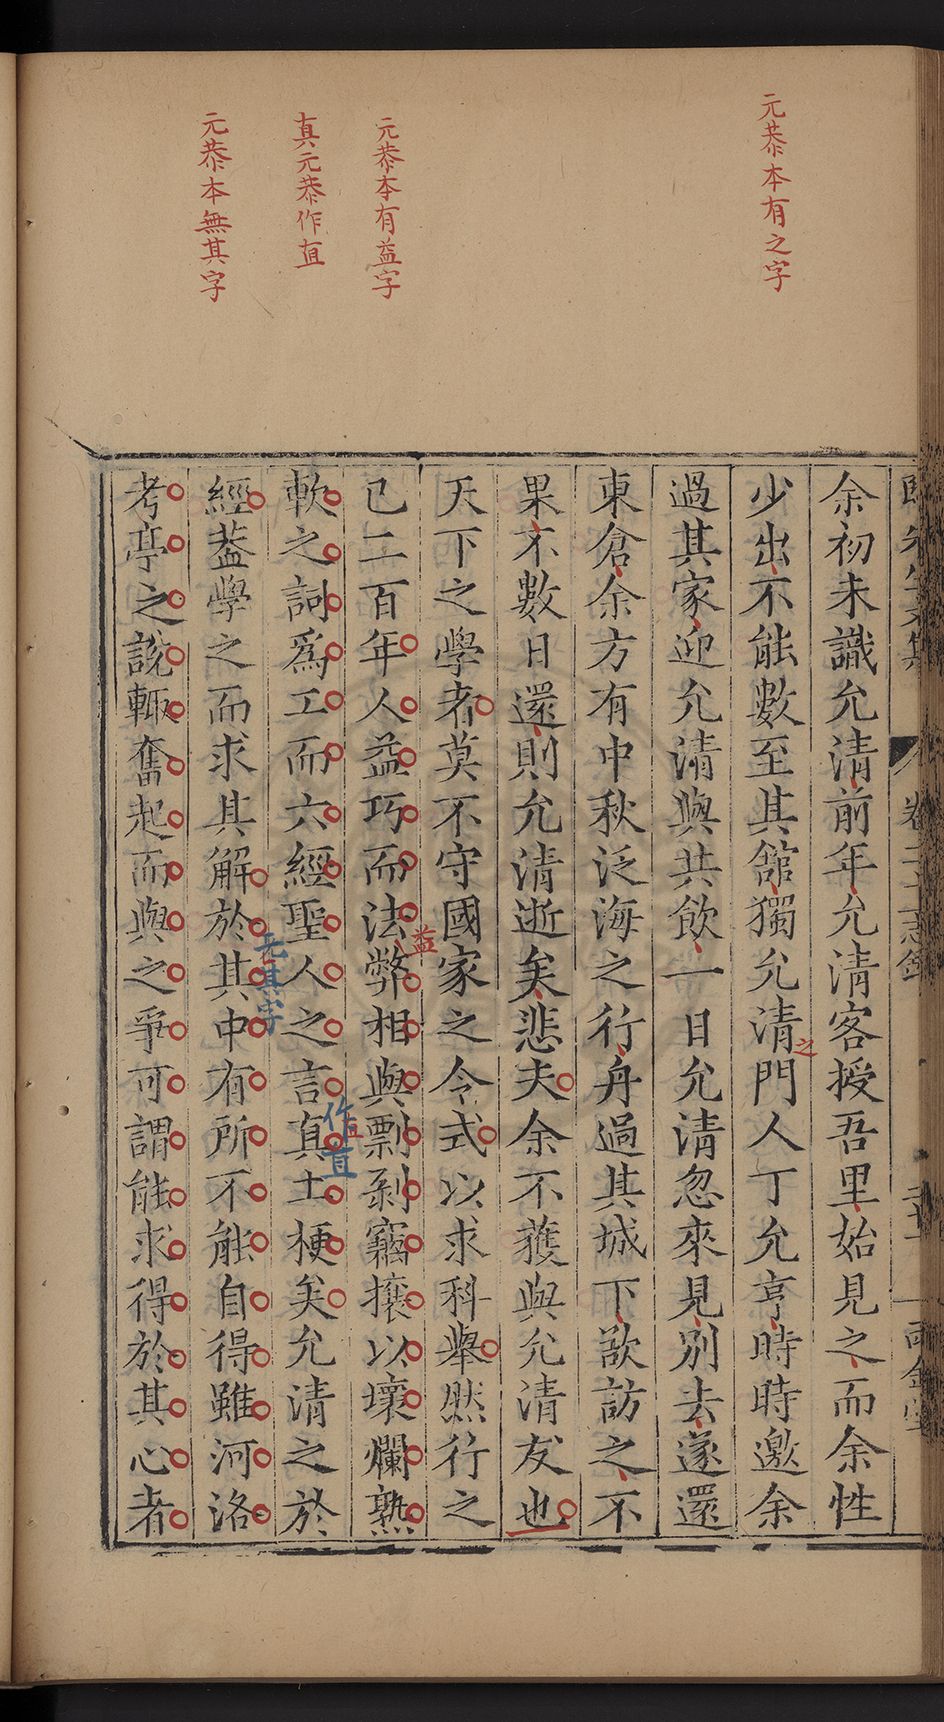 元恭本有之字
元恭本有益字
真元恭作直
元恭本無其字
余初未識允清前年允清客授吾里始見之而余性
少出不能數至其館獨允清門人丁允亨時時邀余
之
過其家迎允清與共飲一日允清忽來見別去遂還
東倉余方有中秋泛海之行舟過其城下欲訪之不
果不數日還則允清逝矣悲夫余不獲與允清友也
天下之學者莫不守國家之令式以求科舉然行之
已二百年人益巧而法弊相與剽剥竊攘以壞爛熟
益
軟之詞為工而六經聖人之言真土梗矣允清之於
作直
直
經葢學之而求其解於其中有所不能自得雖河洛
無其字
考亭之說輒奮起而與之爭可謂能求得於其心者